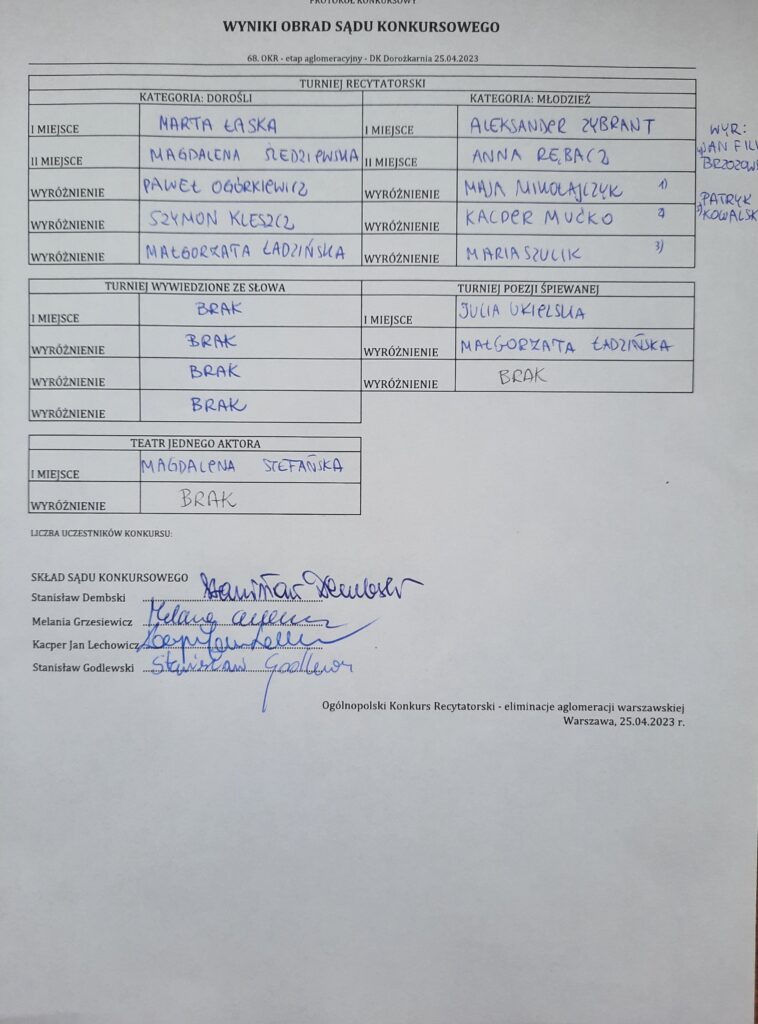 PROTOKÓŁ KONKURSOWY
WYNIKI OBRAD SĄDU KONKURSOWEGO
68. OKR - etap aglomeracyjny - DK Dorożkarnia 25.04.2023
TURNIEJ RECYTATORSKI
KATEGORIA: DOROŚLI
I MIEJSCE MARTA ŁASKA
II MIEJSCE MAGDALENA ŚLEDZIEWSKA
WYRÓŻNIENIE PAWEŁ OGÓRKIEWICZ
WYRÓŻNIENIE SZYMON KLESZCZ
WYRÓŻNIENIE MAŁGORZATA ŁADZIŃSKA
KATEGORIA: MŁODZIEŻ
I MIEJSCE ALEKSANDER ZYBRANT
II MIEJSCE ANNA RĘBACZ
WYRÓŻNIENIE MAJA MIKOŁAJCZYK 1)
WYRÓŻNIENIE KACPER MUĆKO 2)
WYRÓŻNIENIE MARIA SZULIK 3)
WYR:
JAN FIL
BRZOZOW
PATRYK
KOWALSK
TURNIEJ WYWIEDZIONE ZE SŁOWA
I MIEJSCE BRAK
WYRÓŻNIENIE BRAK
WYRÓŻNIENIE BRAK
WYRÓŻNIENIE BRAK
TURNIEJ POEZJI ŚPIEWANEJ
I MIEJSCE JULIA UKIELSKA
WYRÓŻNIENIE MAŁGORZATA ŁADZIŃSKA
WYRÓŻNIENIE BRAK
TEATR JEDNEGO AKTORA
I MIEJSCE MAGDALENA STEFAŃSKA
WYRÓŻNIENIE BRAK
LICZBA UCZESTNIKÓW KONKURSU:
SKŁAD SĄDU KONKURSOWEGO
Stanisław Dembski Stanisław Dembski
Melania Grzesiewicz
Kacper Jan Lechowicz
Stanisław Godlewski Stanisław Godlewski
Ogólnopolski Konkurs Recytatorski - eliminacje aglomeracji warszawskiej
Warszawa, 25.04.2023 r.